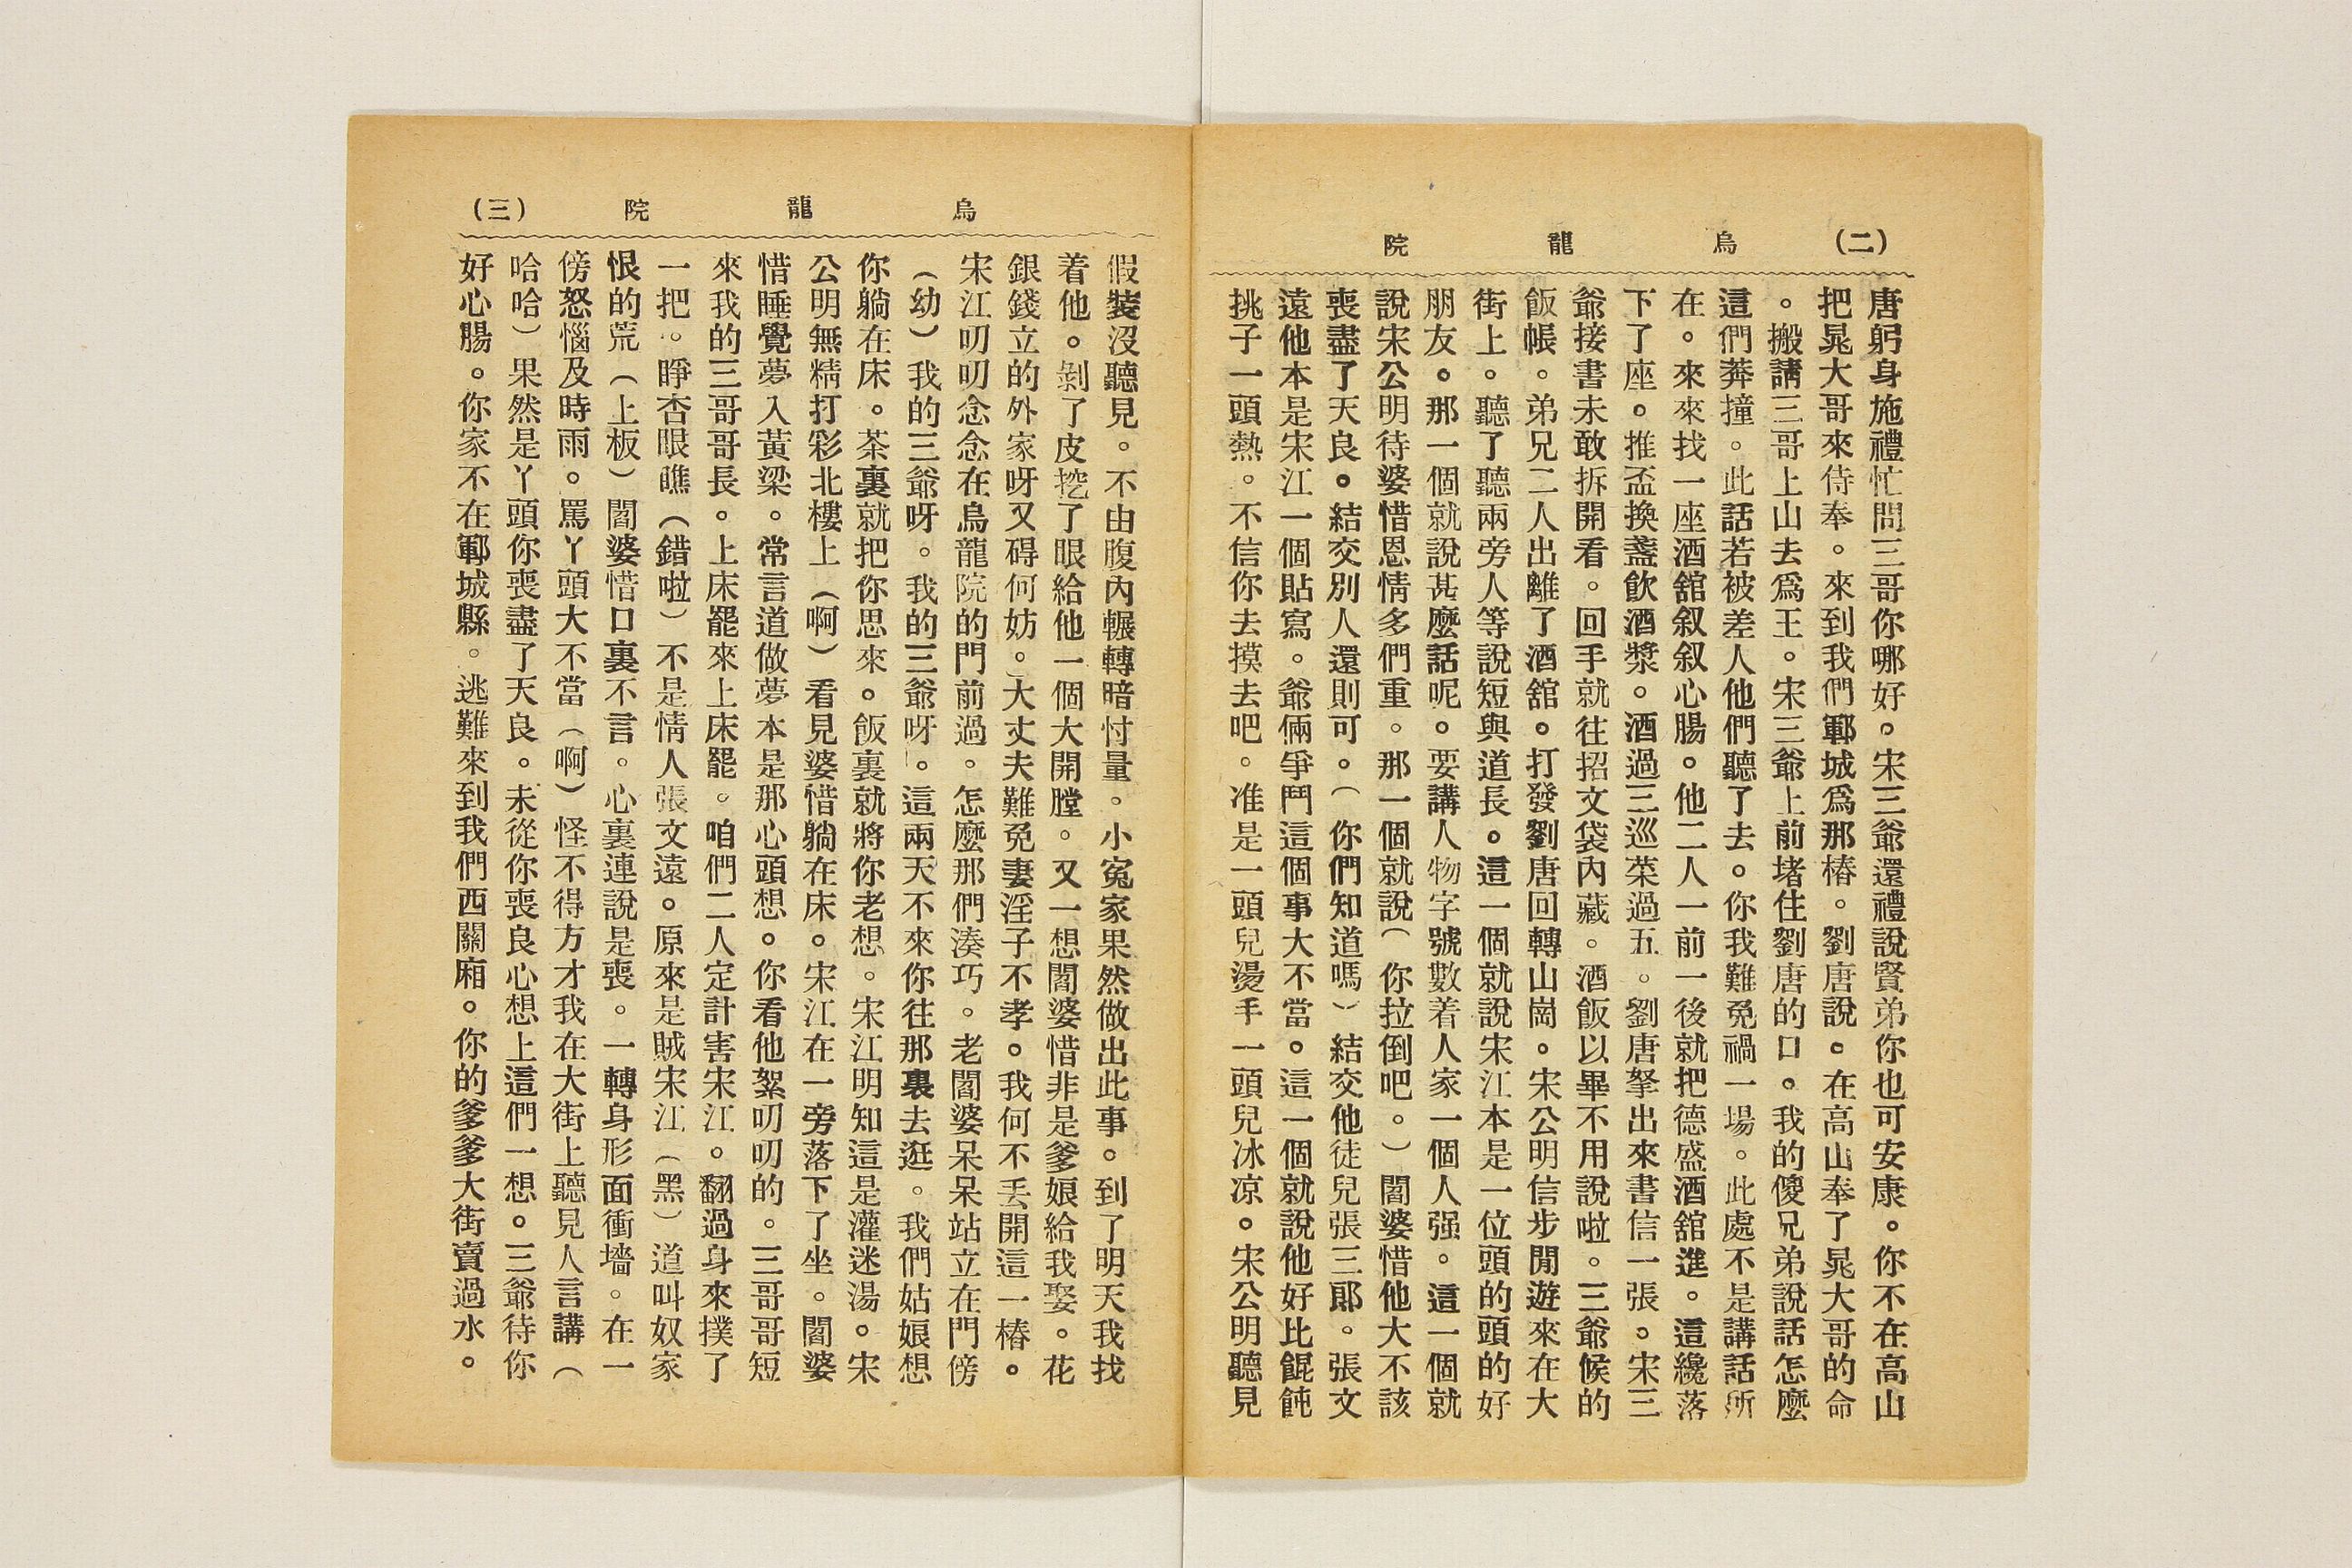 (二) 烏龍院
唐躬身施禮忙問三哥你哪好。宋三爺還禮說賢弟你也可安康。你不在高山
把晁大哥來侍奉。來到我們鄆城爲那樁。劉唐說。在高山奉了晁大哥的命
。搬請三哥上山去爲王。宋三爺上前堵住劉唐的口。我的傻兄弟說話怎麼
這們莽撞。此話若被差人他們聽了去。你我難免禍一場。此處不是講話所
在。來來找一座酒舘叙叙心腸。他二人一前一後就把德盛酒舘進。這纔落
下了座。推盃換盞飲酒漿。酒過三巡菜過五。劉唐拏出來書信一張。宋三
爺接書未敢拆開看。回手就往招文袋內藏。酒飯以畢不用說啦。三爺候的
飯帳。弟兄二人出離了酒舘。打發劉唐回轉山崗。宋公明信步閒遊來在大
街上。聽了聽兩旁人等說短與道長。這一個就說宋江本是一位頭的頭的好
朋友。那一個就說甚麼話呢。要講人物字號數着人家一個人强。這一個就
說宋公明待婆惜恩情多們重。那一個就說（你拉倒吧。）閻婆惜他大不該
喪盡了天良。結交別人還則可。（你們知道嗎）結交他徒兒張三郎。張文
遠他本是宋江一個貼寫。爺倆爭鬥這個事大不當。這一個就說他好比餛飩
挑子一頭熱。不信你去摸去吧。准是一頭兒燙手一頭兒冰凉。宋公明聽見
烏龍院 (三)
假裝沒聽見。不由腹內輾轉暗忖量。小寃家果然做出此事。到了明天我找
着他。剝了皮挖了眼給他一個大開膛。又一想閻婆惜非是爹娘給我娶。花
銀錢立的外家呀又碍何妨。大丈夫難免妻淫子不孝。我何不丢開這一樁。
宋江叨叨念念在烏龍院的門前過。怎麼那們湊巧。老閻婆呆呆站立在門傍
（幼）我的三爺呀。我的三爺呀。這兩天不來你往那裏去逛。我們姑娘想
你躺在床。茶裏就把你思來。飯裏就將你老想。宋江明知這是灌迷湯。宋
公明無精打彩北樓上（啊）看見婆惜躺在床。宋江在一旁落下了坐。閻婆
惜睡覺夢入黃梁。常言道做夢本是那心頭想。你看他絮叨叨的。三哥哥短
來我的三哥哥長。上床罷來上床罷。咱們二人定計害宋江。翻過身來撲了
一把。睜杏眼瞧（錯啦）不是情人張文遠。原來是賊宋江（黑）道叫奴家
恨的荒（上板）閻婆惜口裏不言。心裏連說是喪。一轉身形面衝墻。在一
傍怒惱及時雨。罵丫頭大不當（啊）怪不得方才我在大街上聽見人言講（
哈哈）果然是丫頭你喪盡了天良。未從你喪良心想上這們一想。三爺待你
好心腸。你家不在鄆城縣。逃難來到我們西關廂。你的爹爹大街賣過水。